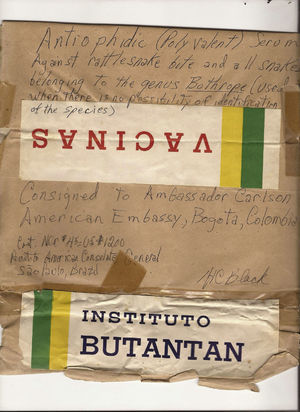 Antiophidic (Polyvalent) Serum
Against rattlesnake bite and all snakes
belonging to the genus Bothrops (used
when there is no possibility of identification
of the species)
VACINAS
Consigned to Ambassador Carlson
American Embassy, Bogota, Colombia
American Consulate General
Sao Paulo, Brazil
HC Black
INSTITUTO
BUTANTAN